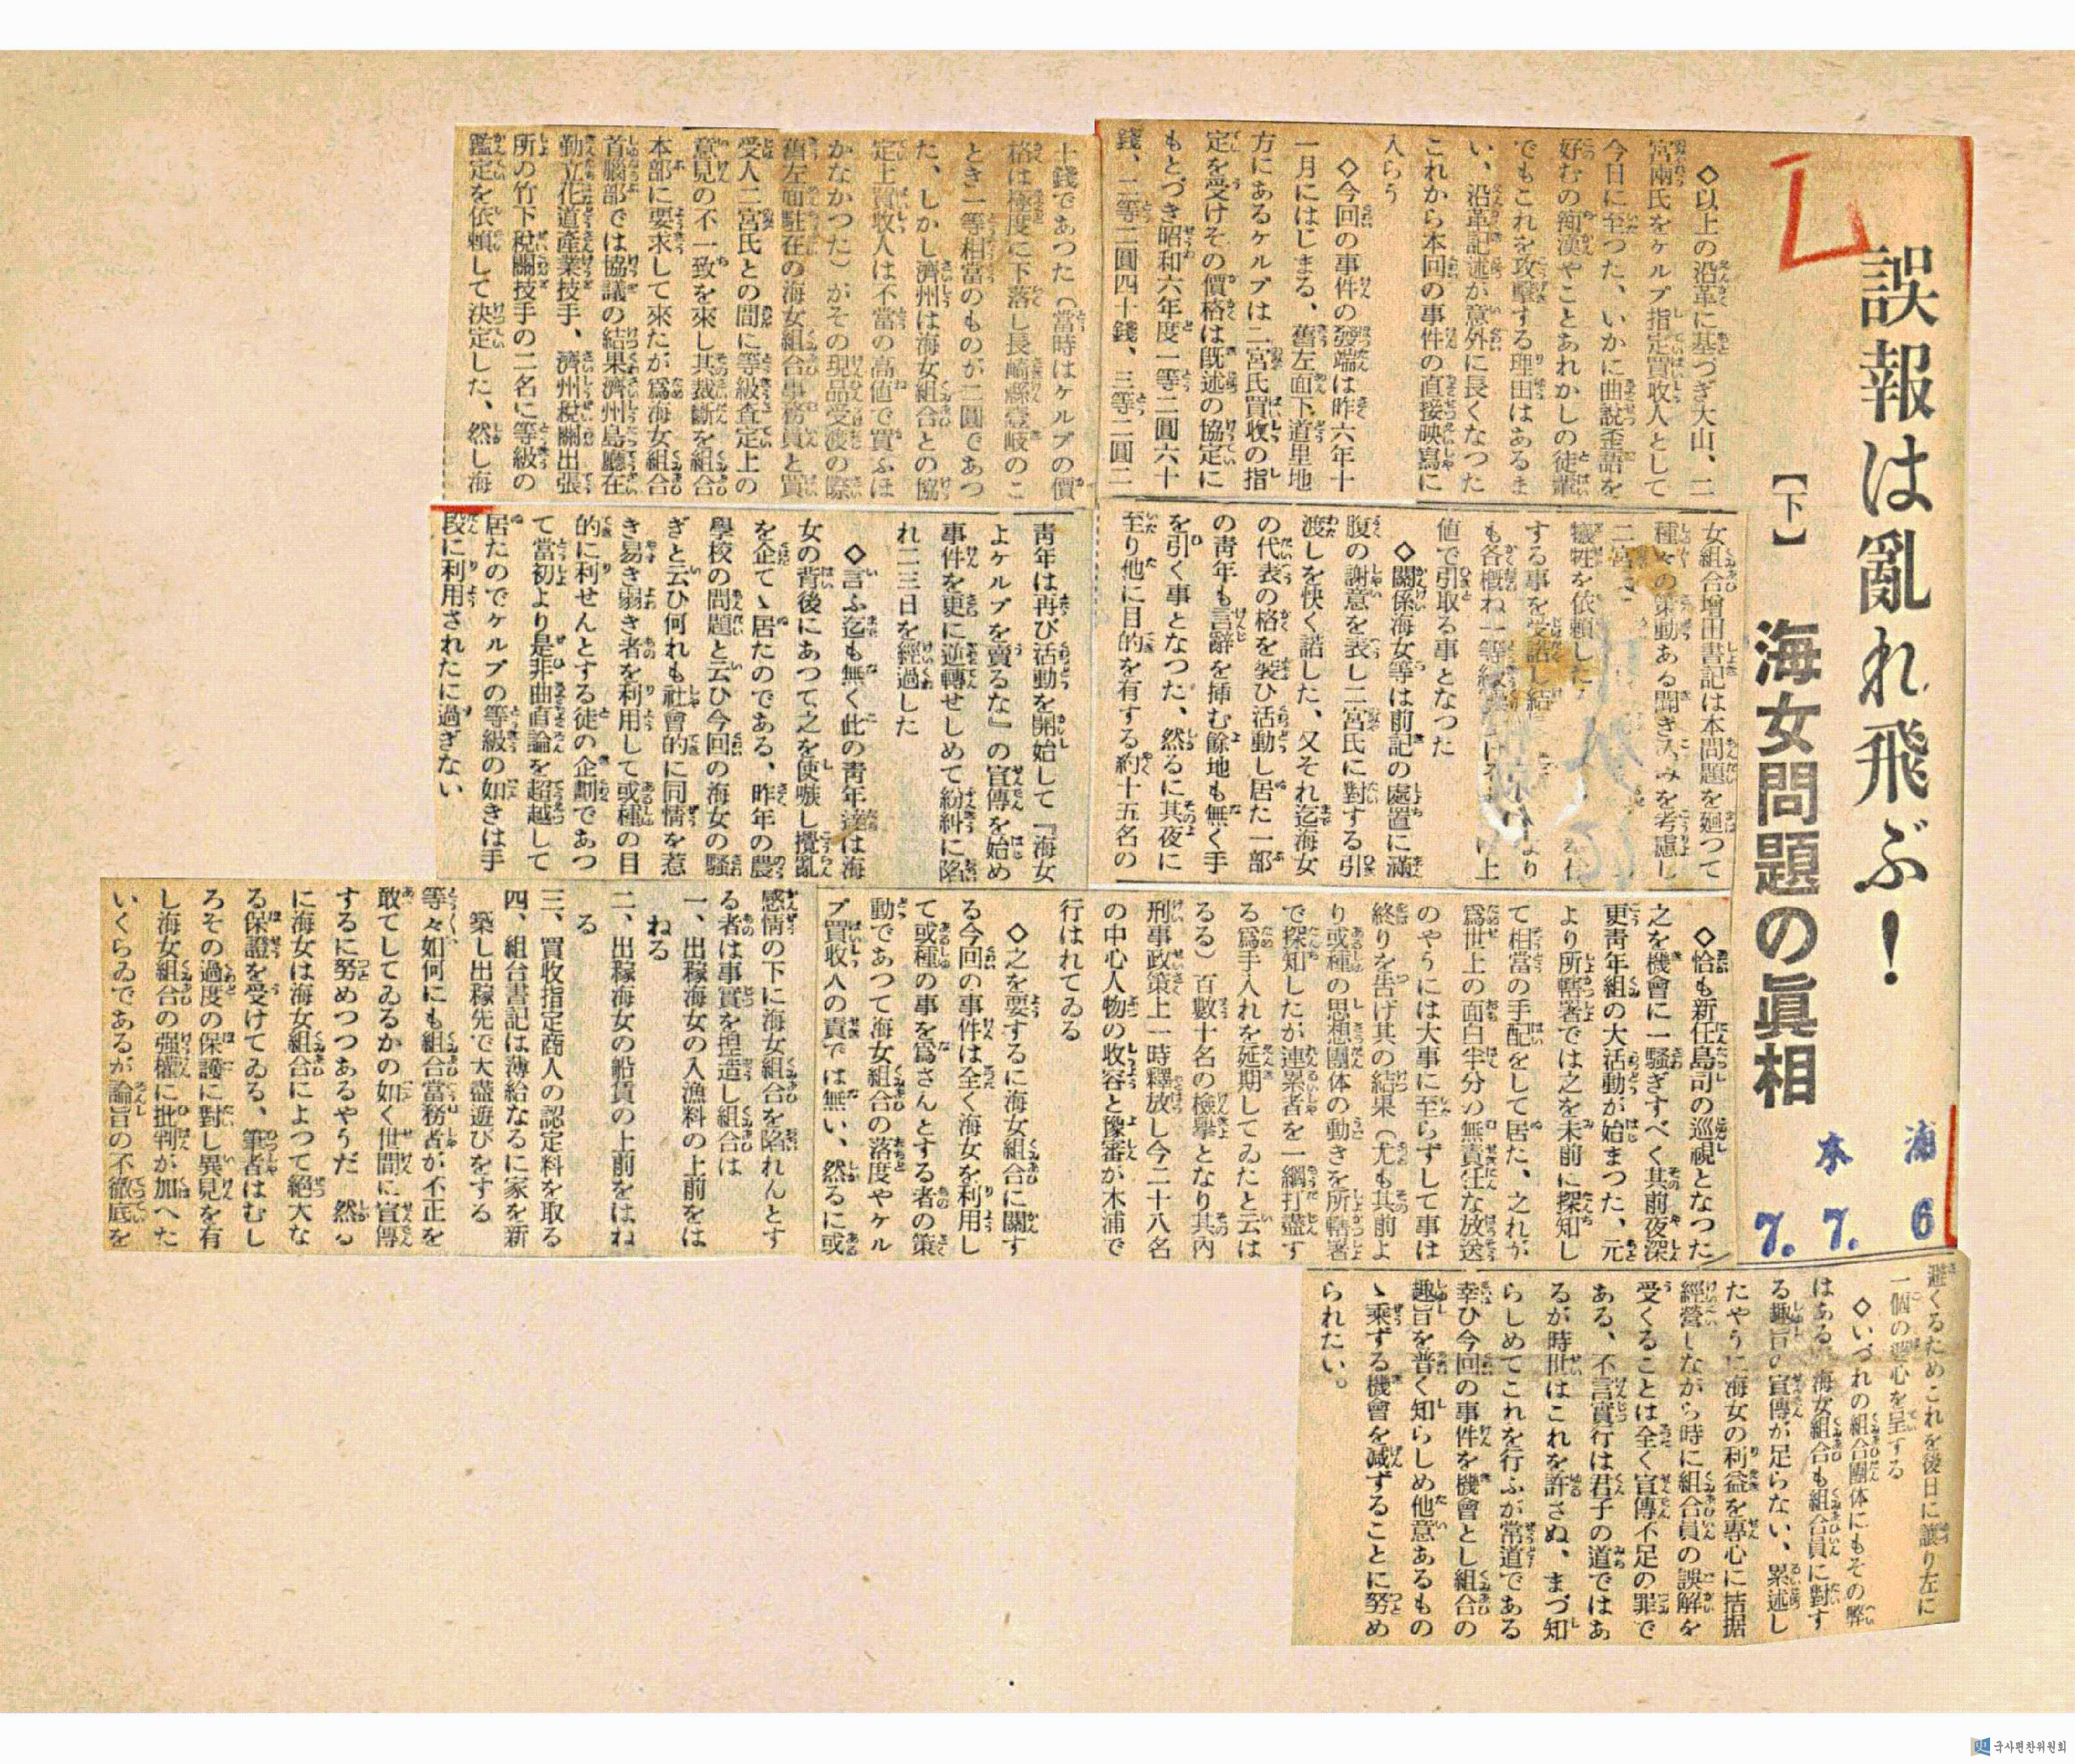 誤報は亂れ飛ぶ！
【下】
海女問題の眞相
木浦
7. 7. 6
◇以上の沿革に基づき大山、二
宮兩氏をケルプ指定買收人として
今日に至つた、いかに曲說歪語を
好むの痴漢やことあれかしの徒輩
でもこれを攻擊する理由はあるま
い、沿革記述が意外に長くなつた
これから本回の事件の直接映寫に
入らう
◇今回の事件の發端は昨六年十
一月にはじまる、舊左面下道里地
方にあるケルプは二宮氏買收の指
定を受けその價格は既述の協定に
もとづき昭和六年度一等二圓六十
錢、二等二圓四十錢、三等二圓二
十錢であつた（當時はケルプの價
格は極度に下落し長崎縣壹岐のこ
とき一等相當のものが二圓であつ
た、しかし濟州は海女組合との協
定上買收人は不當の高値で買ふほ
かなかつた）がその現品受渡の際
舊左面駐在の海女組合事務員と買
受人二宮氏との間に等級查定上の
意見の不一致を來し其裁斷を組合
本部に要求して來たが爲海女組合
首腦部では協議の結果濟州島廳在
勤立花道產業技手、濟州稅關出張
所の竹下稅關技手の二名に等級の
鑑定を依賴して決定した、然し海
女組合增田書記は本問題を廻つて
種々の策動ある聞き込みを考慮し
二宮氏
犧牲を依賴した
する事を受諾し結 より
も各概ね一等級 上
値で引取る事となつた
◇關係海女等は前記の處置に滿
腹の謝意を表し二宮氏に對する引
渡しを快く諾した、又それ迄海女
の代表の格を裝ひ活動し居た一部
の靑年も言辭を挿む餘地も無く手
を引く事となつた、然るに其夜に
至り他に目的を有する約十五名の
靑年は再び活動を開始して『海女
よケルプを賣るな』の宣傳を始め
事件を更に逆轉せしめて紛糾に陷
れ二三日を經過した
◇言ふ迄も無く此の靑年達は海
女の背後にあつて之を使嗾し攪亂
を企てゝ居たのである、昨年の農
學校の問題と云ひ今回の海女の騷
ぎと云ひ何れも社會的に同情を惹
き易き弱き者を利用して或種の目
的に利せんとする徒の企劃であつ
て當初より是非曲直論を超越して
居たのでケルプの等級の如きは手
段に利用されたに過ぎない
◇恰も新任島司の巡視となつた
之を機會に一騷ぎすべく其前夜深
更靑年組の大活動が始まつた、元
より所轄署では之を未前に探知し
て相當の手配をして居た、之れが
爲世上の面白半分の無責任な放送
のやうには大事に至らずして事は
終りを吿げ其の結果（尤も其前よ
り或種の思想團体の動きを所轄署
で探知したが連累者を一網打盡す
る爲手入れを延期してゐたと云は
るる）百數十名の檢擧となり其內
刑事政策上一時釋放し今二十八名
の中心人物の收容と豫審が木浦で
行はれてゐる
◇之を要するに海女組合に關す
る今回の事件は全く海女を利用し
て或種の事を爲さんとする者の策
動であつて海女組合の落度やケル
プ買收人の責では無い、然るに或
感情の下に海女組合を陷れんとす
る者は事實を捏造し組合は
一、出稼海女の入漁料の上前をは
ねる
二、出稼海女の船賃の上前をはね
る
三、買收指定商人の認定料を取る
四、組合書記は薄給なるに家を新
築し出稼先で大盡遊びをする
等々如何にも組合當務者が不正を
敢てしてゐるかの如く世間に宣傳
するに努めつつあるやうだ 然る
に海女は海女組合によつて絕大な
る保證を受けてゐる、筆者はむし
ろその過度の保護に對し異見を有
し海女組合の强權に批判が加へた
いくらゐであるが論旨の不徹底を
避くるためこれを後日に讓り左に
一個の 心を呈する
◇いづれの組合團体にもその弊
はある 海女組合も組合員に對す
る趣旨の宣傳が足らない、累述し
たやうに海女の利益を專心に拮据
經營しながら時に組合員の誤解を
受くることは全く宣傳不足の罪で
ある、不言實行は君子の道ではあ
るが時世はこれを許さぬ、まづ知
らしめてこれを行ふが常道である
幸ひ今回の事件を機會とし組合の
趣旨を普く知らしめ他意あるもの
ゝ乘ずる機會を減ずることに努め
られたい。
국사편찬위원회